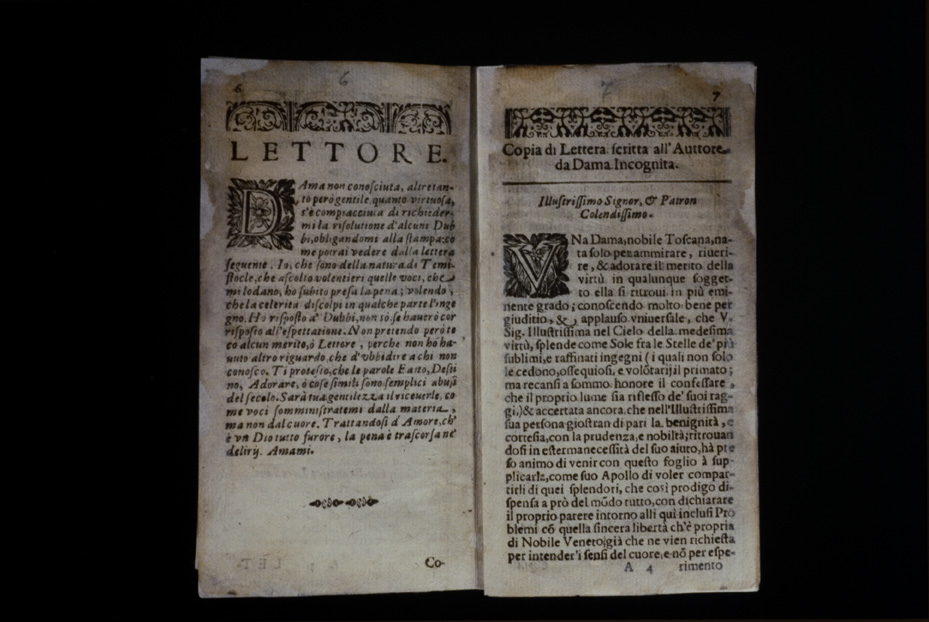 6
6
LETTORE.
DAma non conosciuta, altretan-
to però gentile quanto virtuosa,
s'è compiacciuta di richieder-
mi la risolutione d'alcuni Dub
bi, obligandomi alla stampa: co
me potrai vedere dalla lettera
seguente. Io, che sono della natura di Temi-
stocle, che ascolto volentieri quelle voci, che
mi lodano, hò subito presa la pena; volendo,
che la celerità discolpi in qualche parte l'inge
gno. Hò risposto a' Dubbi, non sò, se hauerò cor
risposto all'espettatione. Non pretendo però te
co alcun merito, ò Lettore, perche non hò ha-
uuto altro riguardo, che d'vbbidire a chi non
conosco. Ti protesto, che le parole Fatto, Desti
no, Adorare, ò cose simili sono semplici abusi
del secolo. Sarà tua gentilezza il riceuerle, co
me voci somministratemi dalla materia,
ma non dal cuore. Trattandosi d'Amore, ch'
è vn Dio tutto furore, la pena è trascorsa ne'
deliry. Amami.
Co-
7
7
Copia di Lettera scritta all'Auttore
da Dama Incognita.
Illustrissimo Signor, & Patron
Colendissimo.
VNa Dama, nobile Toscana, na-
ta solo per ammirare, riueri-
re, & adorare il merito della
virtù in qualunque sogget-
to ella si ritroui in più emi
nente grado; conoscendo molto bene per
giuditio, & applauso vniuersale, che V.
Sig. Illustrissima nel Cielo della medesima
virtù, splende come Sole fra le Stelle de' più
sublimi, e raffinati ingegni (i quali non solo
le cedono, ossequiosi, e volōtarij il primato;
ma recansi a sommo honore il confessare,
che il proprio lume sia riflesso de' suoi rag-
gi,) & accertata ancora, che nell'Illustrissima
sua persona giostran di pari la benignità, e
cortesia, con la prudenza, e nobiltà; ritrouan
dosi in esterma necessità del suo aiuto, hà pre
so animo di venir con questo foglio à sup-
plicarla, come suo Apollo di voler compar-
tirli di quei splendori, che così prodigo di-
spensa a prò del mōdo tutto, con dichiarare
il proprio parere intorno alli quì inclusi Pro
blemi cō quella sincera libertà ch'è propria
di Nobile Veneto; già che ne vien richiesta
per intender' i sensi del cuore, e nō per espe-
A 4 rimento